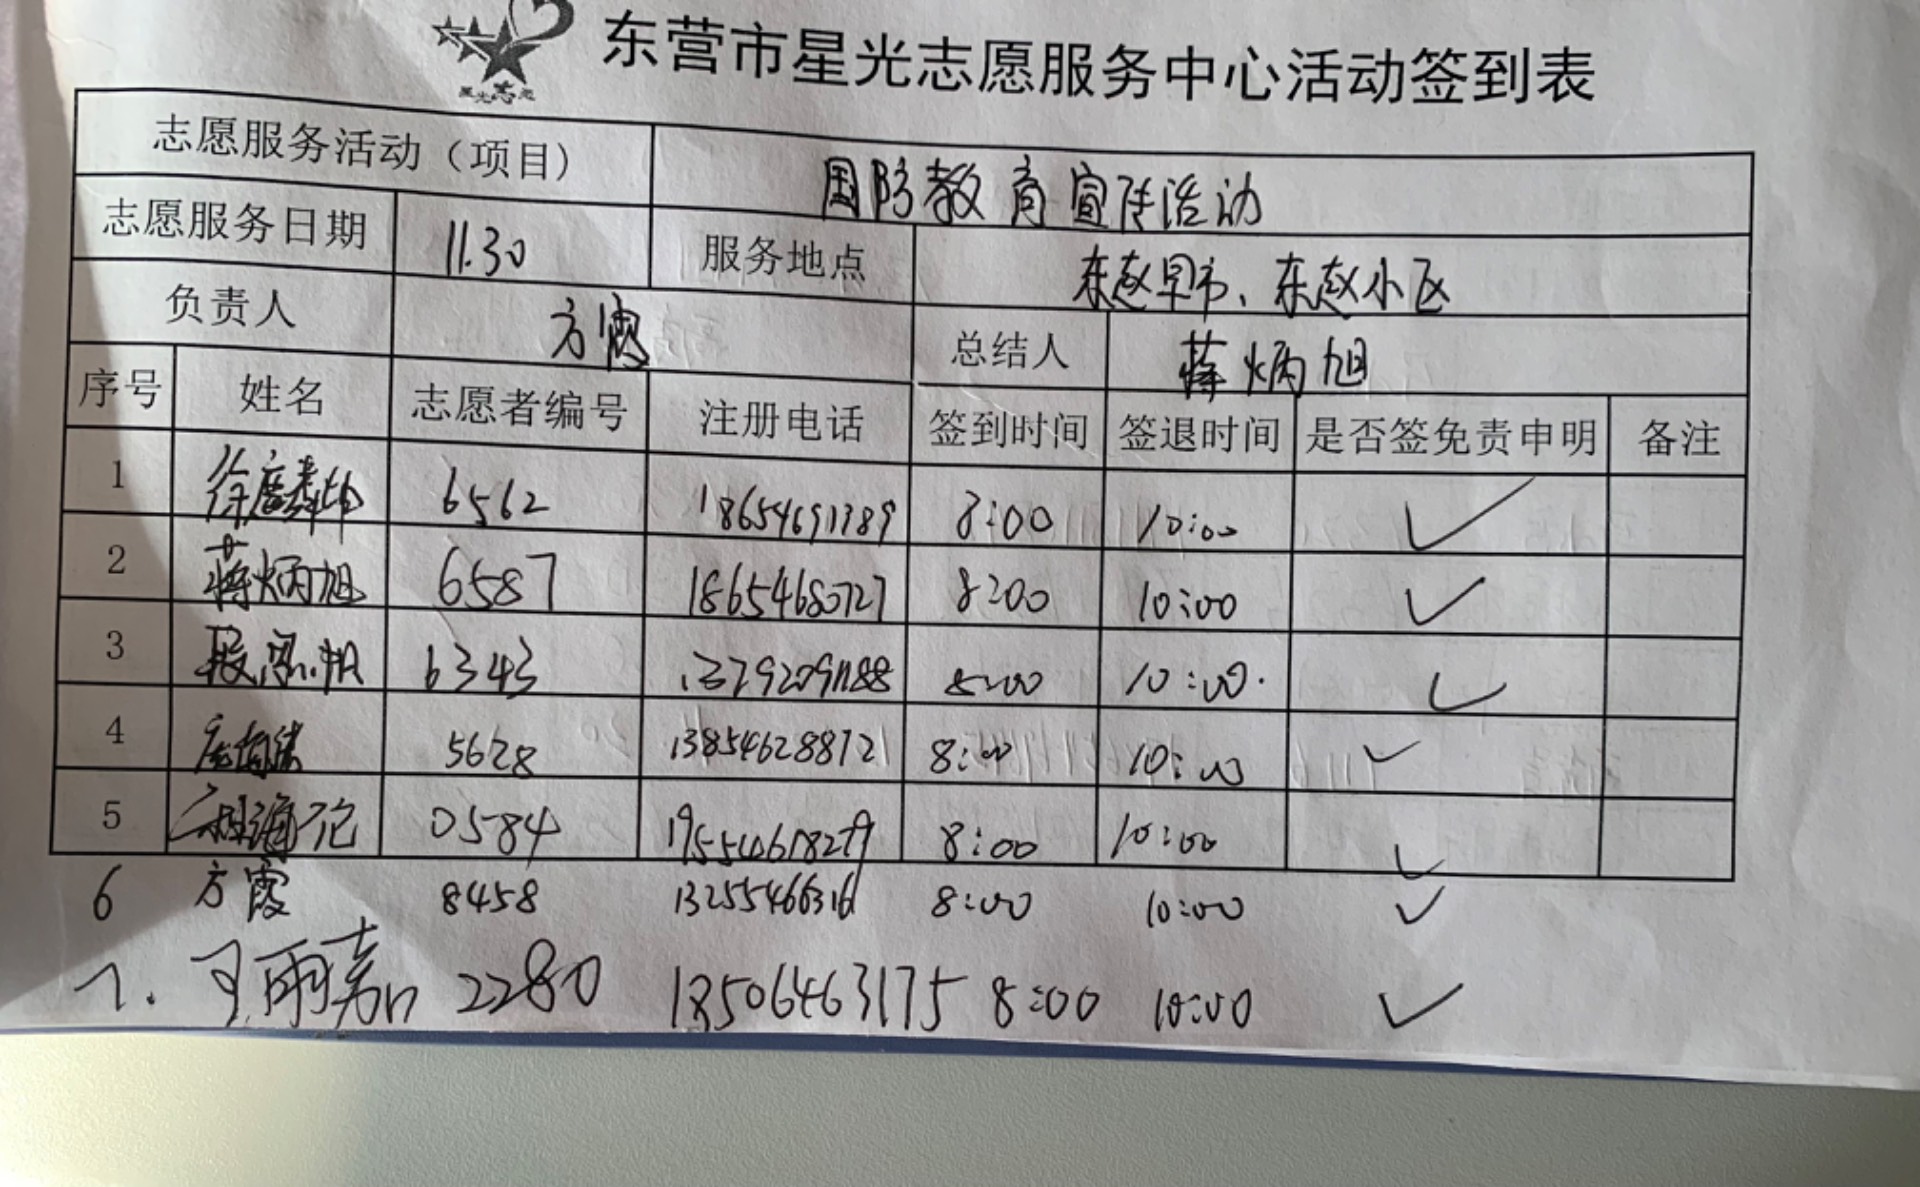 星光志愿
东营市星光志愿服务中心活动签到表
志愿服务活动（项目） 国防教育宣传活动
志愿服务日期 11.30 服务地点 东赵早市、东赵小区
负责人 方霞 总结人 蒋炳旭
序号 姓名 志愿者编号 注册电话 签到时间 签退时间 是否签免责申明 备注
1 6562 18654691389 8:00 10:00 ✓
2 蒋炳旭 6587 18654680727 8:00 10:00 ✓
3 6343 8:00 10:00. ✓
4 5628 13854628812 8:00 10:00 ✓
5 0584 8:00 10:00 ✓
6 方霞 8458 13255466316 8:00 10:00 ✓
7. 王雨嘉 2280 18506463175 8:00 10:00 ✓